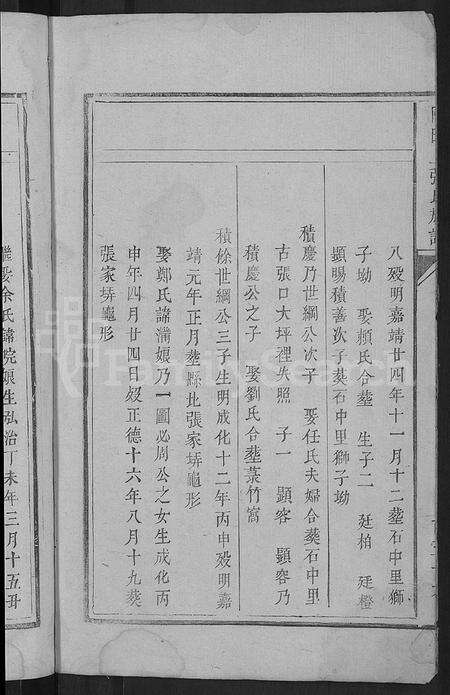 八殁明嘉靖廿四年十一月十二塟石中里獅
子坳 娶賴氏合塟 生子二 廷柏 廷橙
顯賜積善次子葵石中里獅子坳
積慶乃世綱公次子 娶任氏夫婦合葵石中里
古張口大坪裡失照 子一 顯容 顯容乃
積慶公之子 娶劉氏合塟菉竹窩
積條世綱公三子生明成化十二年丙申殁明嘉
靖元年正月塟縣北張家塝龜形
娶鄭氏諱滿娘乃一圖必周公之女生成化丙
申年四月廿四日殁正德十六年八月十九葵
張家塝龜形
繼娶余氏諱院娘生弘治丁未年三月十五丑